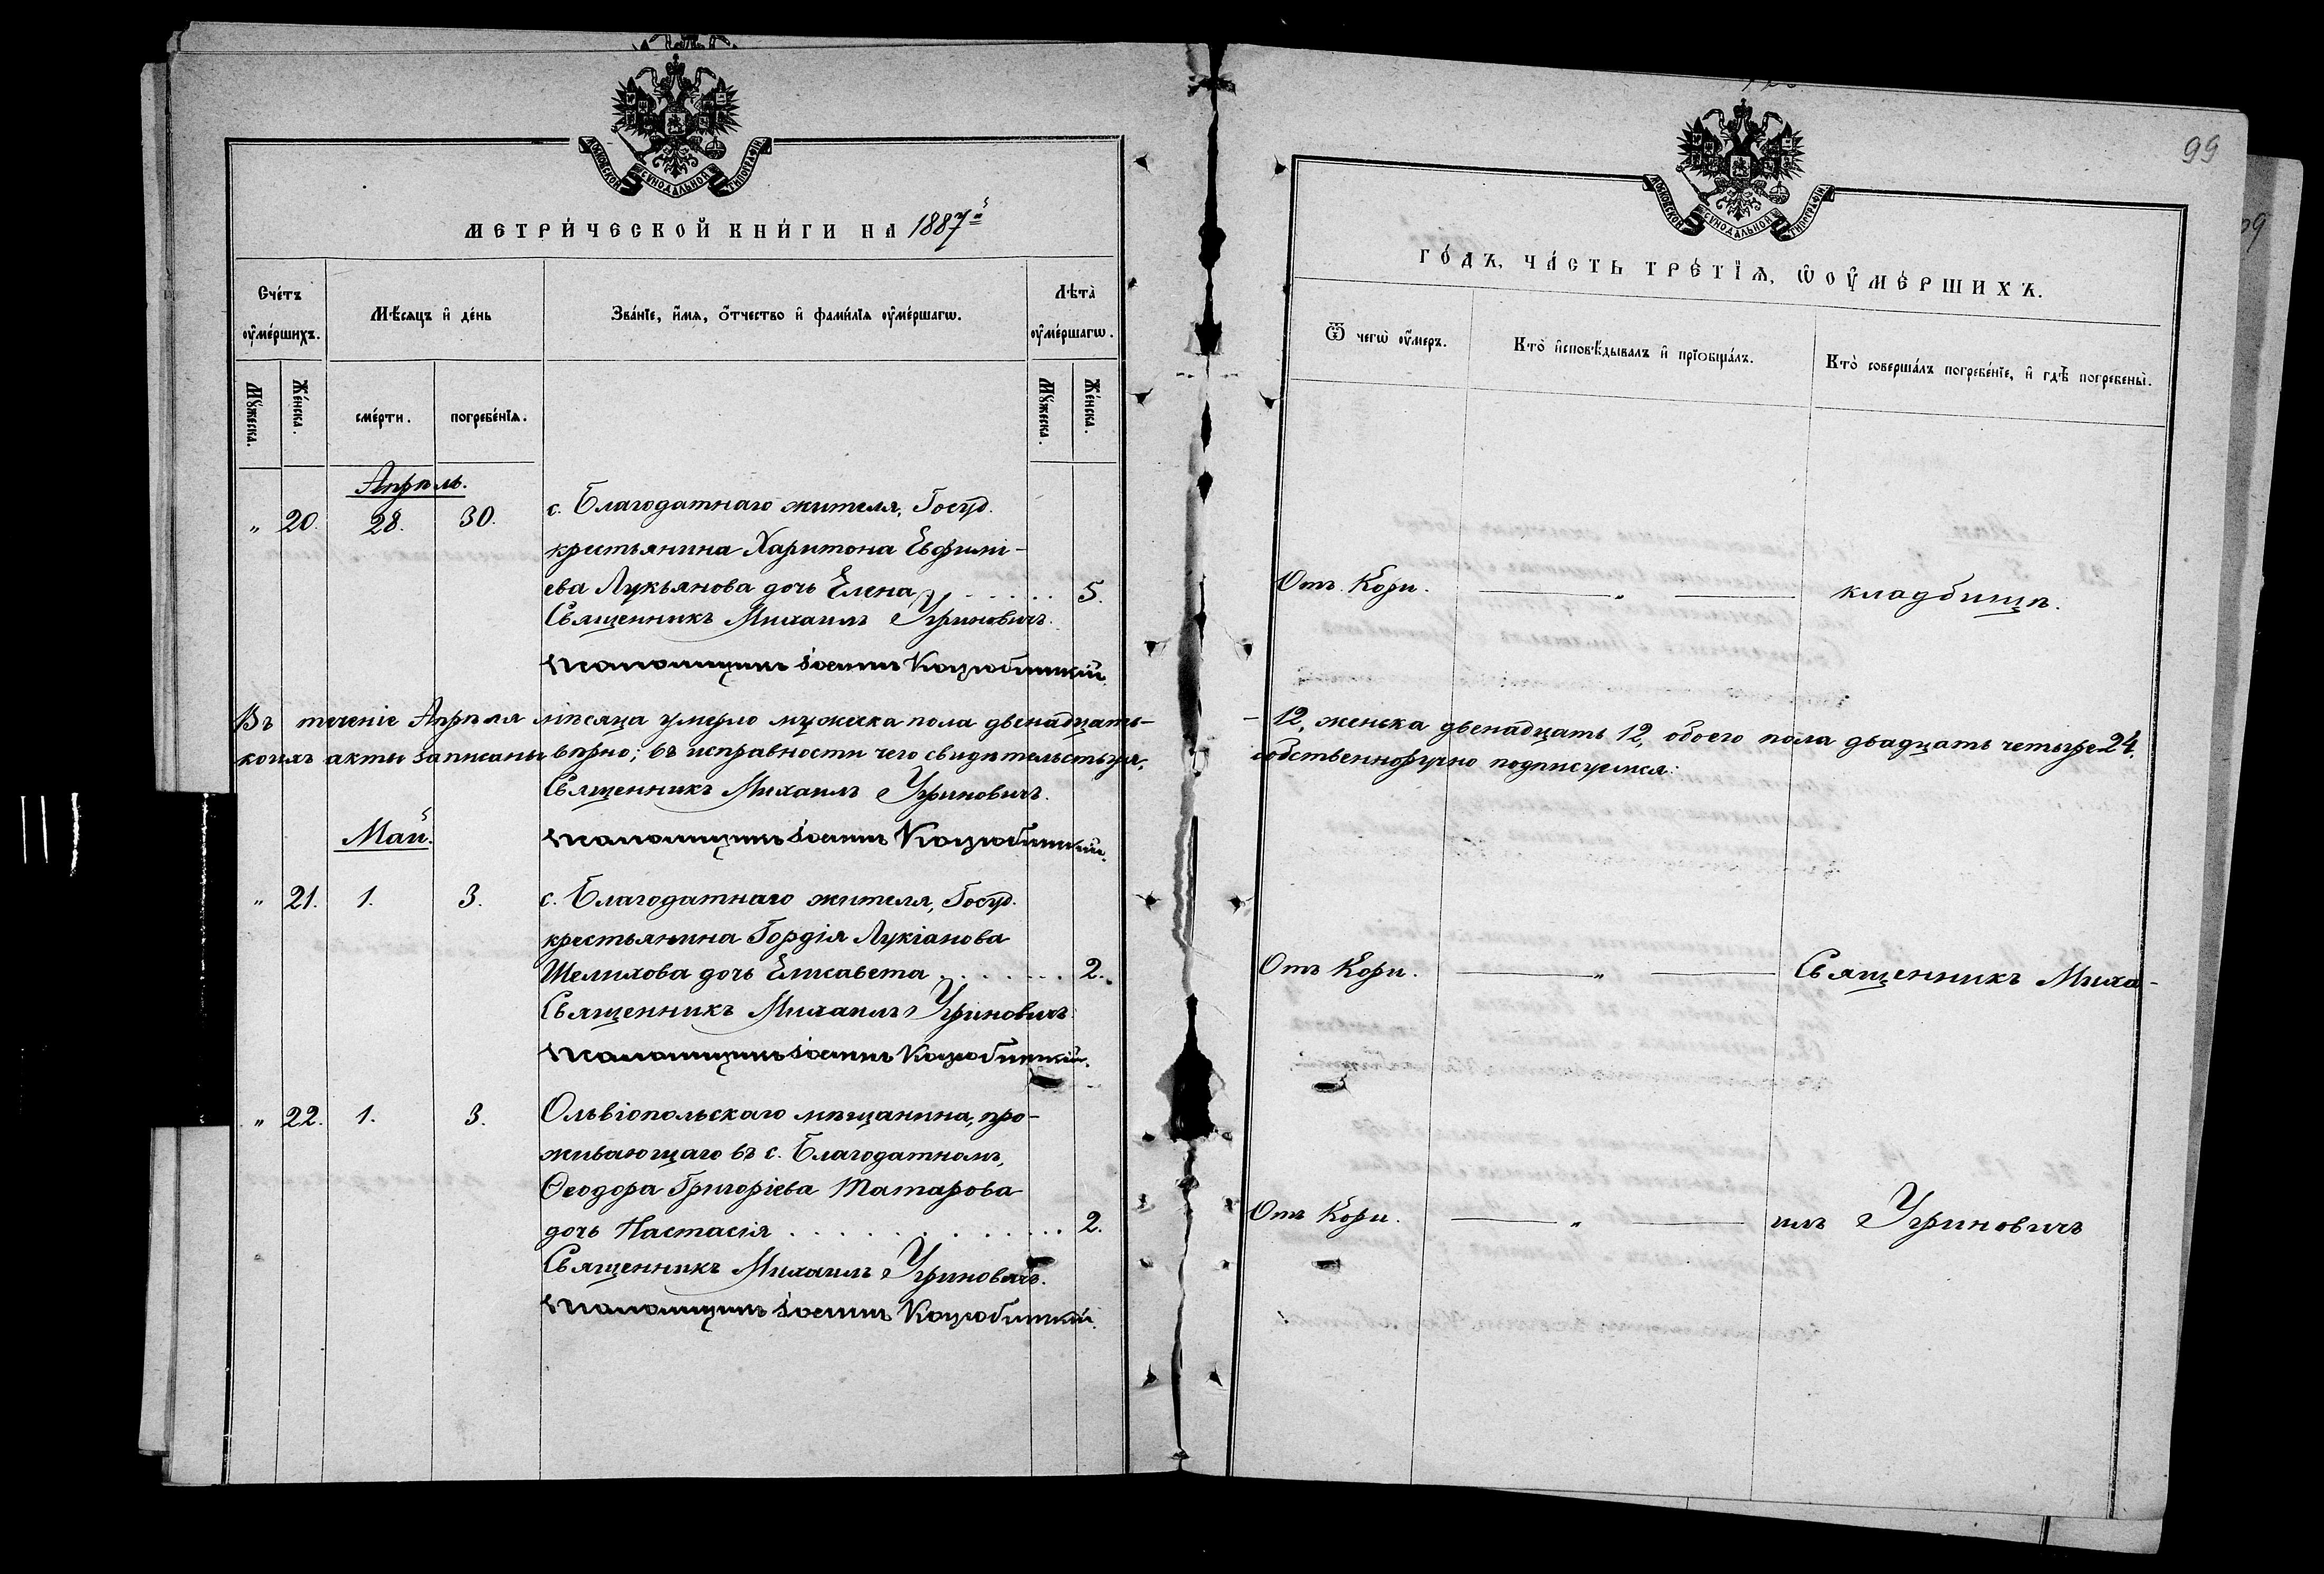 МОСКОВСКОЙ СѴНОДАЛЬНОЙ ТИПОГРАФІИ
МЕТРИ́ЧЕСКОЙ КНИ́ГИ НА 1887й
Сче́тъ ᲂу҆ме́ршихъ.
Мѣ́сяцъ и҆ де́нь
Зва́нїе, и҆́мѧ, ѻ҆́тчество и҆ фами́лїѧ ᲂу҆ме́ршагѡ.
Лѣта̀ ᲂу҆ме́ршагѡ.
Мꙋ́жеска.
Же́нска.
сме́рти.
погребе́нїѧ.
Мꙋ́жеска.
Же́нска.
Апрѣль.
" 20. 28. 30. с. Благодатнаго жителя, Госуд.
крестьянина Харитона Евфимі-
ева Лукьянова дочь Елена . . . . . 5.
Священникъ Михаилъ Угриновичъ.
Псаломщикъ Іоаннъ Коцюбинскій.
Въ теченіе Апрѣля мѣсяца умерло мужеска пола двенадцать-
коихъ акты записаны вѣрно; въ исправности чего свидѣтельствуя,
Священникъ Михаилъ Угриновичъ.
Май. Псаломщикъ Іоаннъ Коцюбинскій.
" 21. 1. 3. с. Благодатнаго жителя, Госуд.
крестьянина Гордія Лукіанова
Шелихова дочь Елисавета . . . . . 2.
Священникъ Михаилъ Угриновичъ
Псаломщикъ Іоаннъ Коцюбинскій.
" 22. 1. 3. Ольвіопольскаго мѣщанина, про-
живающаго въ с. Благодатномъ,
Ѳеодора Григоріева Татарова
дочь Настасія . . . . . . . . . . 2.
Священникъ Михаилъ Угриновичъ.
Псаломщикъ Іоаннъ Коцюбинскій.
99
МОСКОВСКОЙ СѴНОДАЛЬНОЙ ТИПОГРАФІИ
ГО́ДЪ, ЧА́СТЬ ТРЕ́ТЇѦ, Ѡ ОУ҆МЕ́РШИХЪ.
Ѿ чегѡ̀ ᲂу҆́меръ.
Кто̀ и҆сповѣ́дывалъ и҆ прїобща́лъ.
Кто̀ соверша́лъ погребе́нїе, и҆ гдѣ̀ погребены̀.
Отъ Кори. — " — кладбищѣ.
- 12, женска двенадцать 12, обоего пола двадцать четыре 24.
собственноручно подписуемся:
Отъ Кори. — " — Священникъ Миха-
Отъ Кори. — " — илъ Угриновичъ